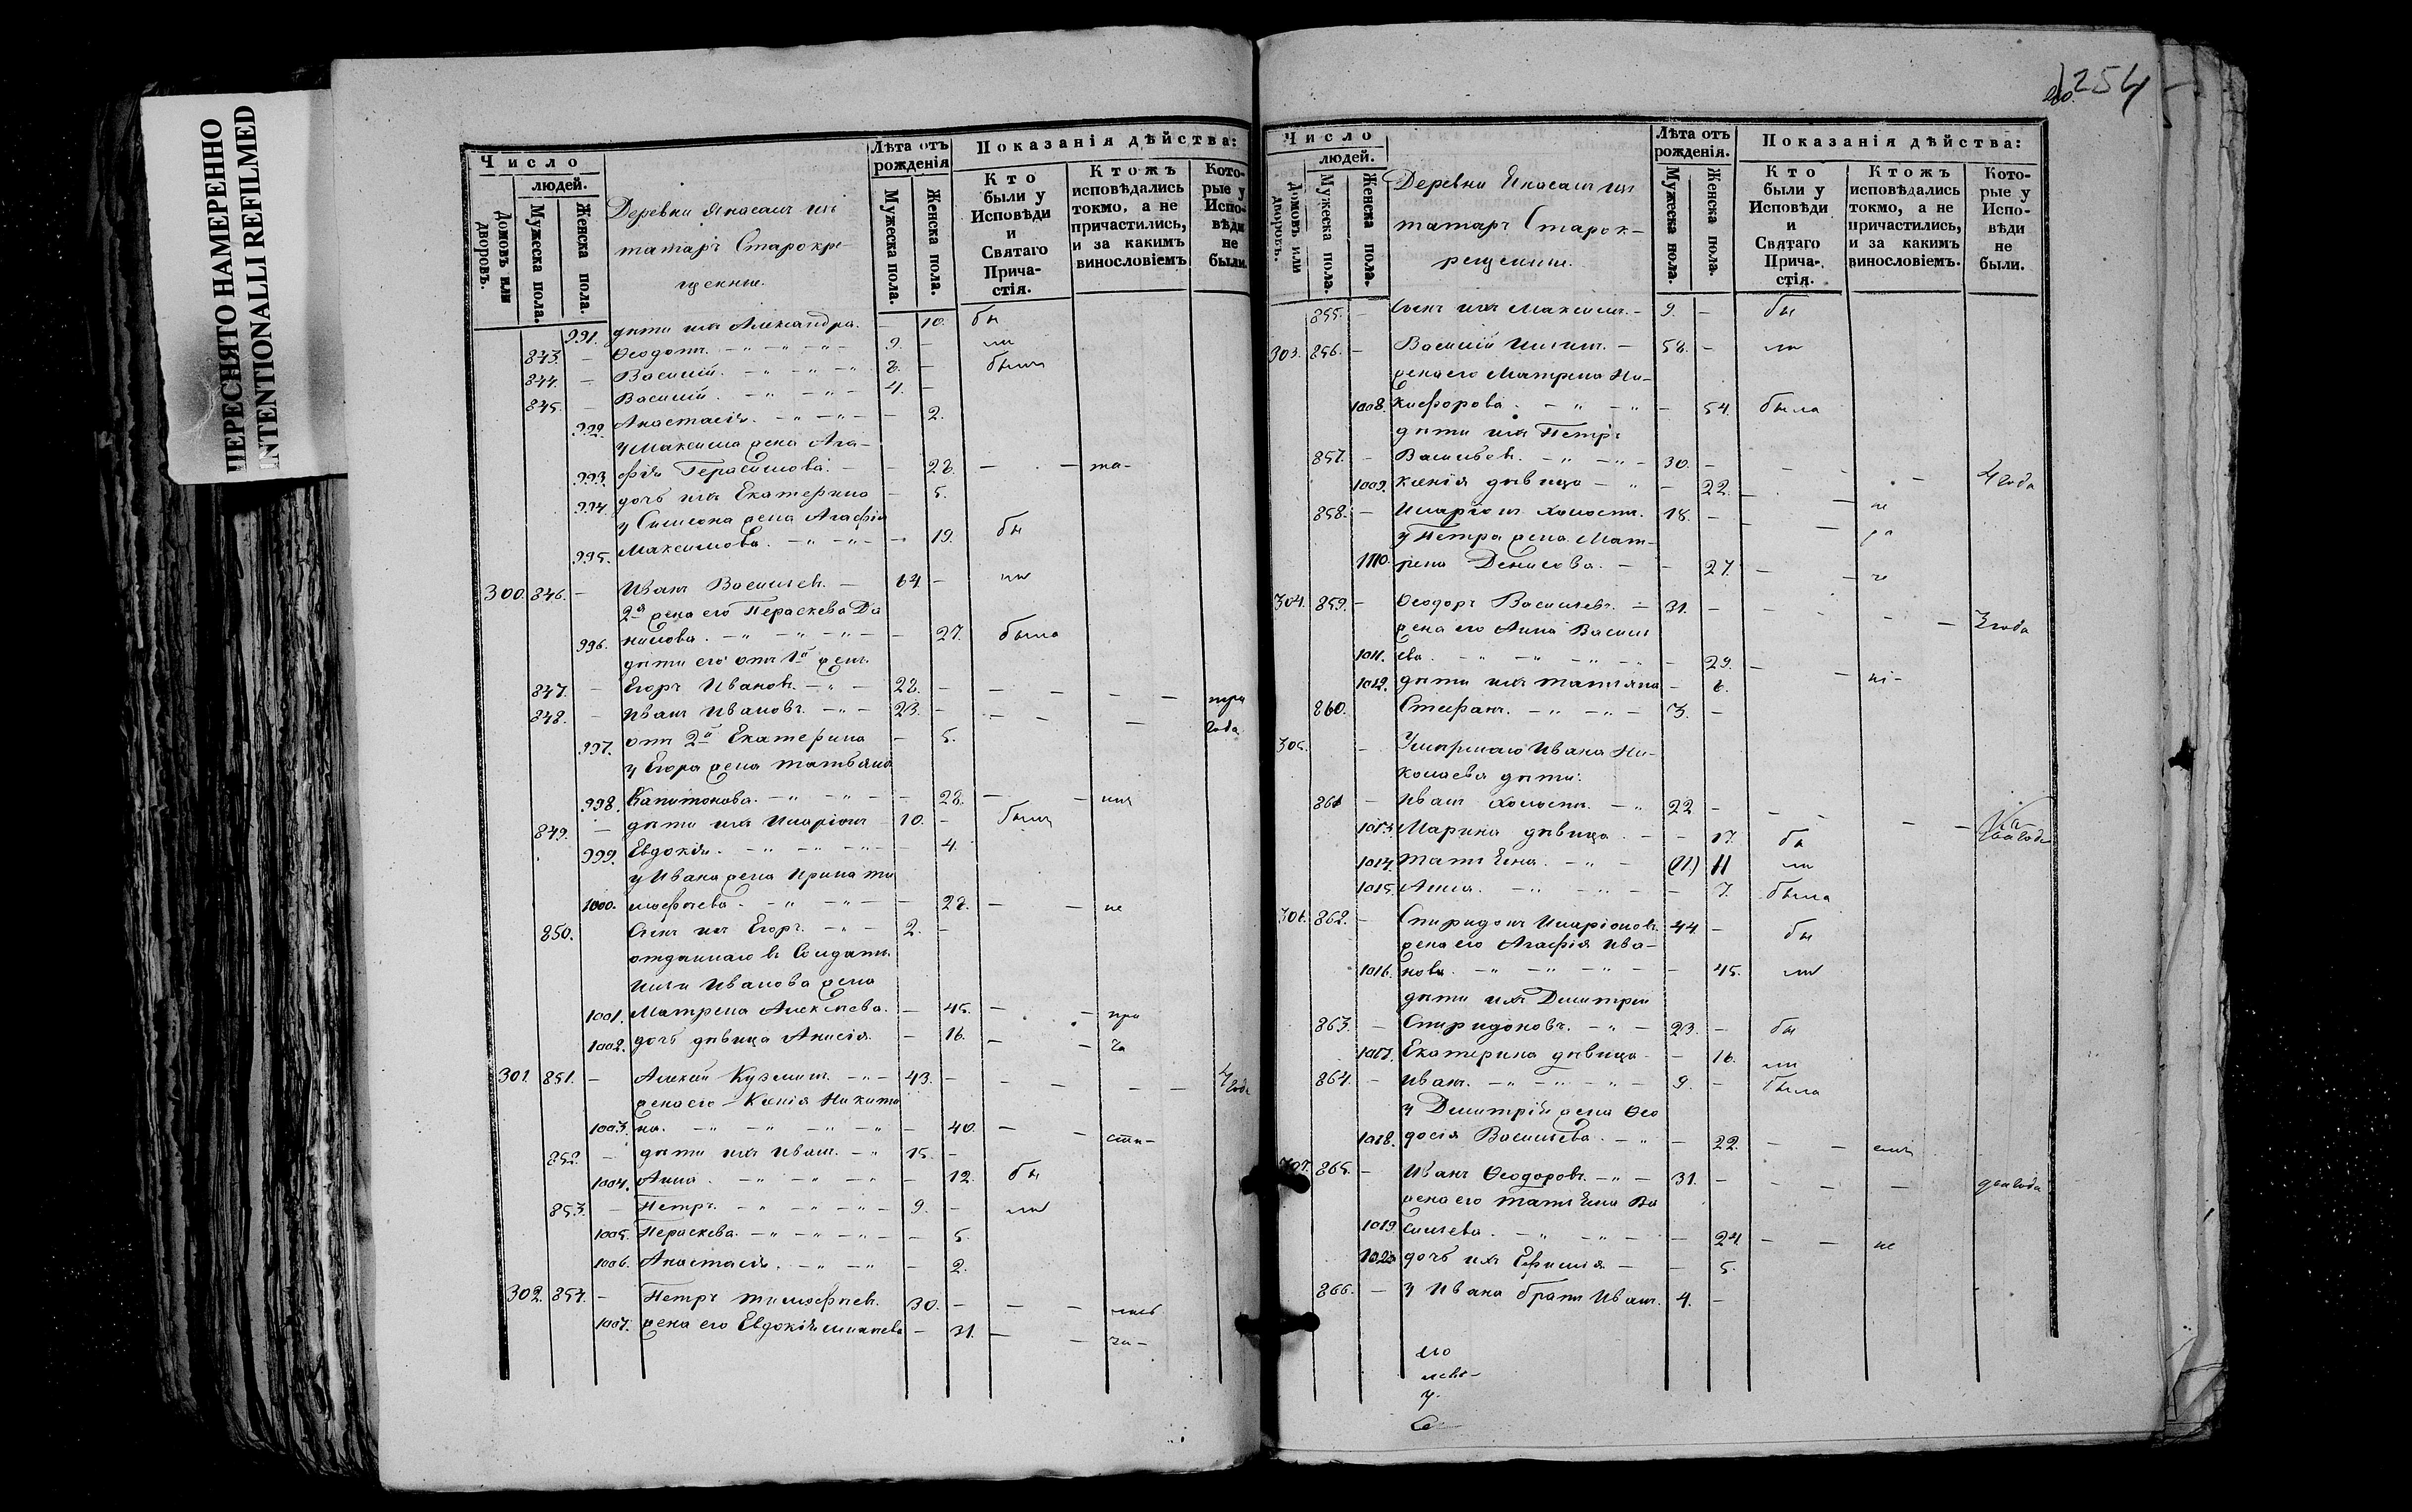 ПЕРЕСНЯТО НАМЕРЕННО
INTENTIONALLI REFILMED
Число
людей.
Домовъ или дворовъ.
Мужеска пола.
Женска пола.
татаръ Старокре-
щенные.
Лѣта отъ рожденія
Мужеска пола.
Женска пола.
Показанія дѣйства:
Кто были у Исповѣди и Святаго Прича-стія.
Ктожъ исповѣдались токмо, а не причастились, и за какимъ винословіемъ
Кото-рые у Испо-вѣди не были.
991. дѣти ихъ Александра. — 10. бы
843. — Ѳеодотъ. 9. — ли
844. — Василій. 8. — были
845. — Василій. 4. —
992. Анастасія. — 2.
у Максима жена Ага-
993. фія Герасимова. — 28.
994. дочь ихъ Екатерина — 5.
у Симеона жена Агафія
995. Максимова. — 19. бы
300. 846. — Иванъ Васильевъ. — 64. — ли
2я жена его Пераскева Да
996. нилова. — 27. была
дѣти его отъ 1й жены
847. — Егоръ Ивановъ. 28. — три
848. — Иванъ Ивановъ. 23. — года
997. отъ 2й Екатерина — 5.
у Егора жена Татьяна
998. Капитонова. — 28.
849. — дѣти ихъ Иларіонъ 10. — были
999. Евдокія. — 4.
у Ивана жена Ирина Ти
1000. мофѣева. — 28. — не
850. Сынъ ихъ Егоръ. 2. —
отданнаго въ Солдаты
Ильи Иванова жена
1001. Матрена Алексѣева. — 45. — при
1002. дочь дѣвица Анисія. — 16. — ча
301. 851. — Алексѣй Кузминъ. 43. — 4 года
жена его Ксенія Никити
1003. на. — 40. — сти-
852. — дѣти ихъ Иванъ. 15. —
1004. Анна. — 12. бы
853. — Петръ. 9. — ли
1005. Пераскева. — 5.
1006. Анастасія. — 2.
302. 854. — Петръ Тимофѣевъ. 30. — лись
1007. жена его Евдокія — 31.
254
Число
людей.
Домовъ или дворовъ.
Мужеска пола.
Женска пола.
татаръ Старок-
рещенные.
Лѣта отъ рожденія.
Мужеска пола.
Женска пола.
Показанія дѣйства:
Кто были у Исповѣди и Святаго Прича-стія.
Ктожъ исповѣдались токмо, а не причастились, и за какимъ винословіемъ.
Кото-рые у Испо-вѣди не были.
855. — Сынъ ихъ Максимъ. 9. — бы
303. 856. — Василій Ильинъ. 58. — ли
жена его Матрена Ни-
1008. кифорова. — 54. была
дѣти ихъ Петръ
857. — Васильевъ. 30. —
1009. Ксенія дѣвица — 22. — 4 года
858. — Иларіонъ холостъ. 18. — не
у Петра жена Мат-
1010. рена Денисова. — 27.
304. 859. — Ѳеодоръ Васильевъ. 31. — 3 года
жена его Анна Василь
1011. ева. — 29.
1012. дѣти ихъ Татьяна — 6.
860. Стефанъ. 3. —
305. — Умершаго Ивана Ни-
колаева дѣти:
861 — Иванъ холостъ. 22 —
1013. Марина дѣвица. — 17. бы
1014. Татьяна. (11) 11 ли
1015. Анна. — 7. была
306. 862. — Спиридонъ Иларіоновъ. 44. — бы
жена его Агафія Ива-
1016. нова. — 45. ли
дѣти ихъ Димитрій
863. — Спиридоновъ. 23. — бы
1017. Екатерина дѣвица. — 16. ли
864. — Иванъ. 9. — была
у Димитрія жена Ѳео
1018. досія Васильева. — 22.
307. 865. — Иванъ Ѳеодоровъ. 31. — два года
жена его Татьяна Ва
1019. сильева. — 24. — не
1020 дочь ихъ Ефимія — 5.
866. — у Ивана братъ Иванъ. 4. —